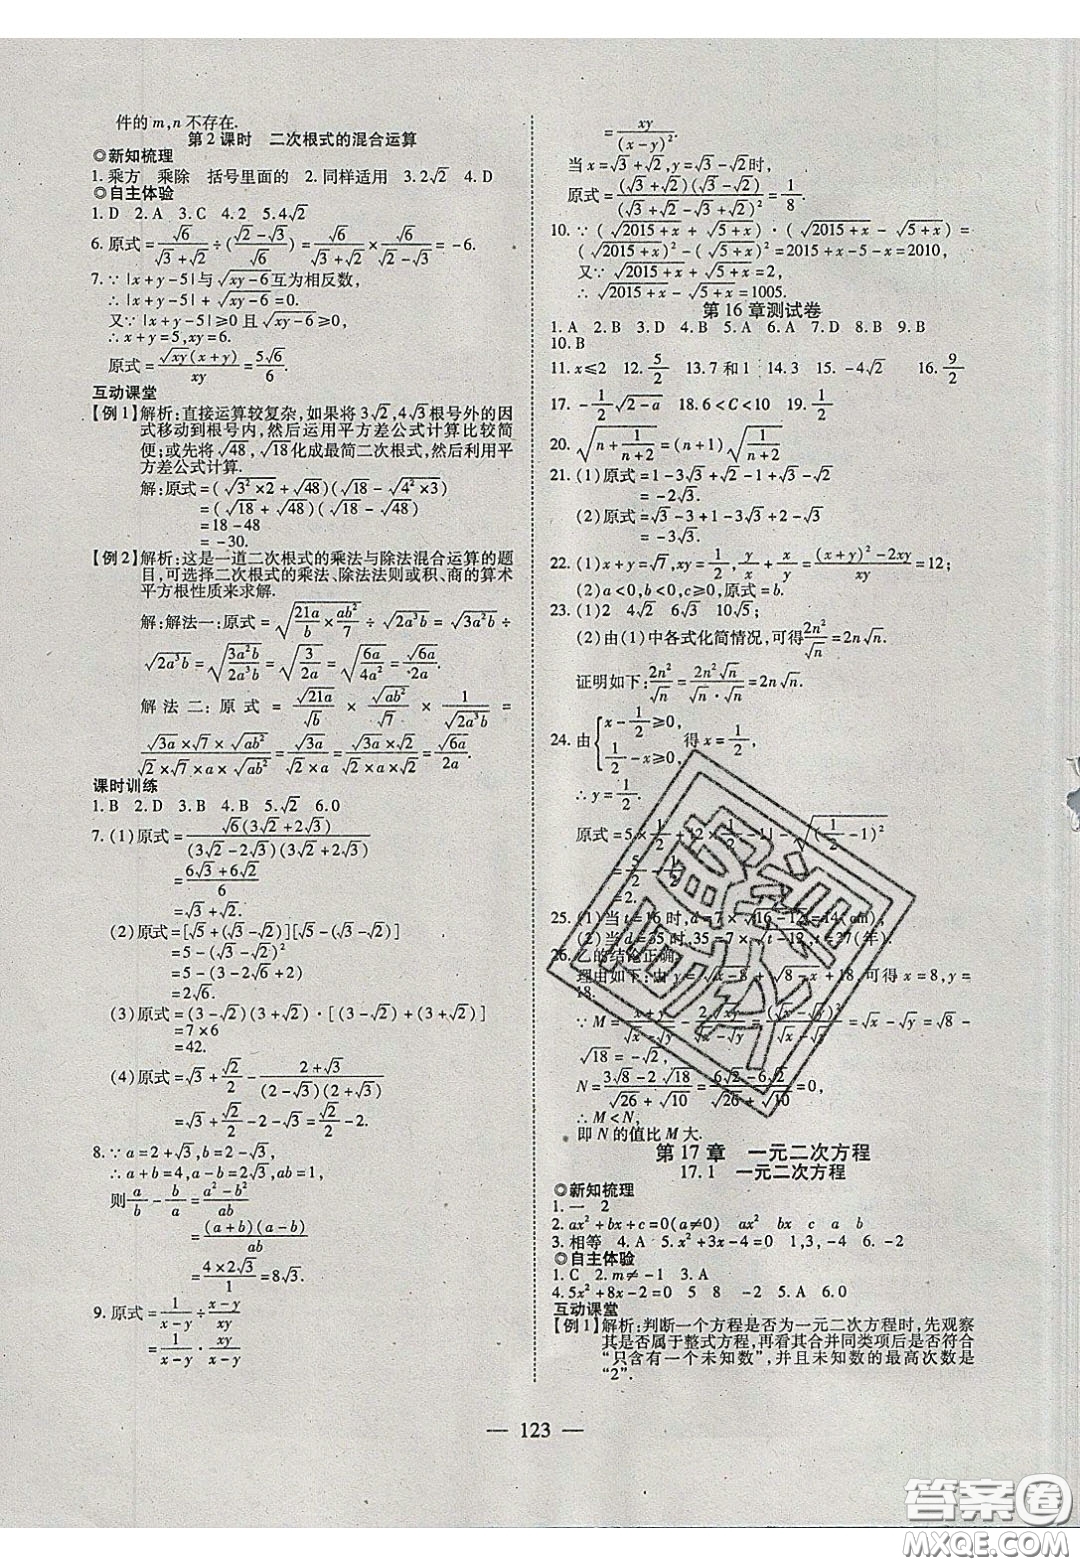 件的 m,n 不存在.
第 2 课时　二次根式的混合运算
◎新知梳理
1. 乘方　乘除　括号里面的　2. 同样适用　3. 2√2　4. D
◎自主体验
1. D　2. A　3. C　4. 2　5. 4√2
6. 原式=√6/(√3+√2)÷((√2-√3)/√6)=√6/(√3+√2)×√6/(√2-√3)=-6.
7. ∵|x+y-5|与√(xy-6)互为相反数,
∴|x+y-5|+√(xy-6)=0.
又∵|x+y-5|≥0 且√(xy-6)≥0,
∴x+y=5,xy=6.
原式=√(xy)(x+y)/xy=5√6/6.
互动课堂
【例 1】解析:直接运算较复杂,如果将 3√2,4√3 根号外的因
式移动到根号内,然后运用平方差公式计算比较简
便;或先将√48,√18化成最简二次根式,然后利用平
方差公式计算.
解:原式=(√(3²×2)+√48)(√18-√(4²×3))
=(√18+√48)(√18-√48)
=18-48
=-30.
【例 2】解析:这是一道二次根式的乘法与除法混合运算的题
目,可选择二次根式的乘法、除法法则或积、商的算术
平方根性质来求解.
解:解法一:原式=√(21a/b×ab²/7)÷√(2a³b)=√(3a²b)÷
√(2a³b)=√(3a²b/2a³b)=√(3/2a)=√(6a/4a²)=√(6a)/2a.
解法二:原式=√(21a)/√b×√(ab²)/√7×1/√(2a³b)=
√(3a)×√7×√(ab²)/(√2×√7×a×√(ab²))=√(3a)/(√2×a)=√(3a)×√2/(√2×√2×a)=√(6a)/2a.
课时训练
1. B　2. D　3. A　4. B　5. √2　6. 0
7. (1)原式=√6(3√2+2√3)/((3√2-2√3)(3√2+2√3))
=(6√3+6√2)/6
=√3+√2.
(2)原式=[√5+(√3-√2)][√5-(√3-√2)]
=5-(√3-√2)²
=5-(3-2√6+2)
=2√6.
(3)原式=(3-√2)(3+√2)·[(3-√2)+(3+√2)]
=7×6
=42.
(4)原式=√3+√2/2-(2+√3)/((2-√3)(2+√3))
=√3+√2/2-2-√3=√2/2-2.
8. ∵a=2+√3,b=2-√3,
∴a+b=4,a-b=2√3,ab=1.
则a/b-b/a=(a²-b²)/ab
=(a+b)(a-b)/ab
=4×2√3/1=8√3.
9. 原式=1/(x-y)÷(x-y)/xy
=1/(x-y)·xy/(x-y)
=xy/(x-y)².
当 x=√3+√2,y=√3-√2时,
原式=(√3+√2)(√3-√2)/(√3+√2-√3+√2)²=1/8.
10. ∵(√(2015+x)+√(5+x))·(√(2015+x)-√(5+x))=
(√(2015+x))²-(√(5+x))²=2015+x-5-x=2010,
又∵√(2015+x)+√(5+x)=2,
∴√(2015+x)-√(5+x)=1005.
第 16 章测试卷
1. A　2. B　3. B　4. B　5. A　6. A　7. D　8. A　9. B
10. B
11. x≤2　12. 5/2　13. 7 和 1　14. 3　15. -4√2　16. 9/2
17. -1/2√(2-a)　18. 6<C<10　19. 1/2
20. √(n+1/(n+2))=(n+1)√(1/(n+2))
21. (1)原式=1-3√3+√3-1
=-2√3.
(2)原式=√3-3+1-2√3+2-√3
=-2√3.
22. (1)x+y=√7,xy=1/2,y/x+x/y=((x+y)²-2xy)/xy=12;
(2)a<0,b<0,c≥0,原式=b.
23. (1)2　4√2　6√3　10√5;
(2)由(1)中各式化简情况,可得2n²/√n=2n√n.
证明如下:2n²/√n=2n²√n/(√n·√n)=2n√n.
24. 由{x-1/2≥0, 1/2-x≥0,得 x=1/2,
∴y=1/2.
原式=5×1/2+|2×1/2-1|-√((1/2-1)²)
=5/2-1/2
=2.
25. (1)当 t=16 时,d=7×√(16-12)=14(cm);
(2)当 d=35 时,35=7×√(t-12),t=37(年).
26. 乙的结论正确.
理由如下:由 y=√(x-8)+√(8-x)+18,可得 x=8,y=
18.
∵M=(x+y)/(√x-√y)-2√(xy)/(√x-√y)=(√x-√y)²/(√x-√y)=√x-√y=√8-
√18=-√2,
N=(3√8-2√18)/(√26+√10)=(6√2-6√2)/(√26+√10)=0,
∴M<N,
即 N 的值比 M 大.
第 17 章　一元二次方程
17.1　一元二次方程
◎新知梳理
1. 一　2
2. ax²+bx+c=0(a≠0)　ax²　bx　c　a　b
3. 相等　4. A　5. x²+3x-4=0　1,3,-4　6. -2
◎自主体验
1. C　2. m≠-1　3. A
4. 5x²+8x-2=0　5　8　-2　5. A　6. 0
互动课堂
【例 1】解析:判断一个方程是否为一元二次方程时,先观察
其是否属于整式方程,再看其合并同类项后是否符合
“只含有一个未知数”,并且未知数的最高次数是
“2”.
— 123 —
答案卷
MXQE.COM